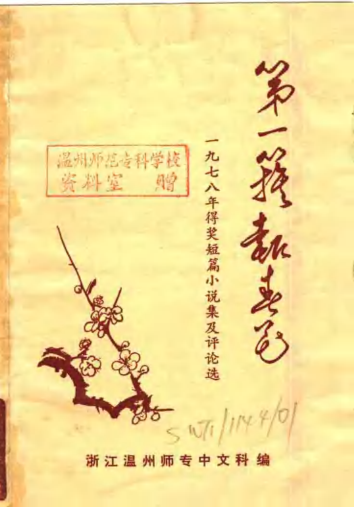 第一簇報春花
一九七八年得奖短篇小说集及评论选
温州师范专科学校
资料室 赠
浙江温州师专中文科编